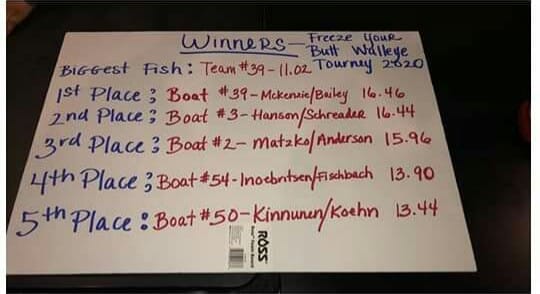 Winners - Freeze Your
Butt Walleye
Biggest Fish: Team #39 - 11.02 Tourney 2020
1st Place: Boat #39 - Mckenzie/Bailey 16.46
2nd Place: Boat #3 - Hanson/Schreader 16.44
3rd Place: Boat #2 - Matzko/Anderson 15.96
4th Place: Boat #54 - Inoebntsen/Fischbach 13.90
5th Place: Boat #50 - Kinnunen/Koehn 13.44
ROSS